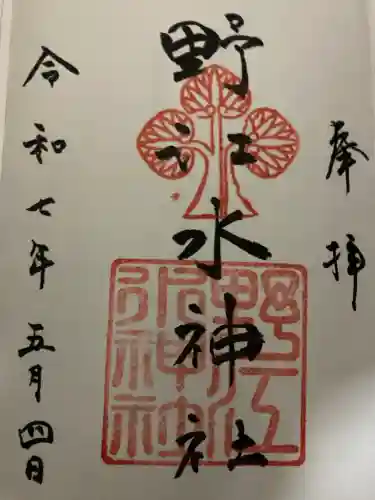 奉拝
野江水神社
野江水神社
令和七年五月四日